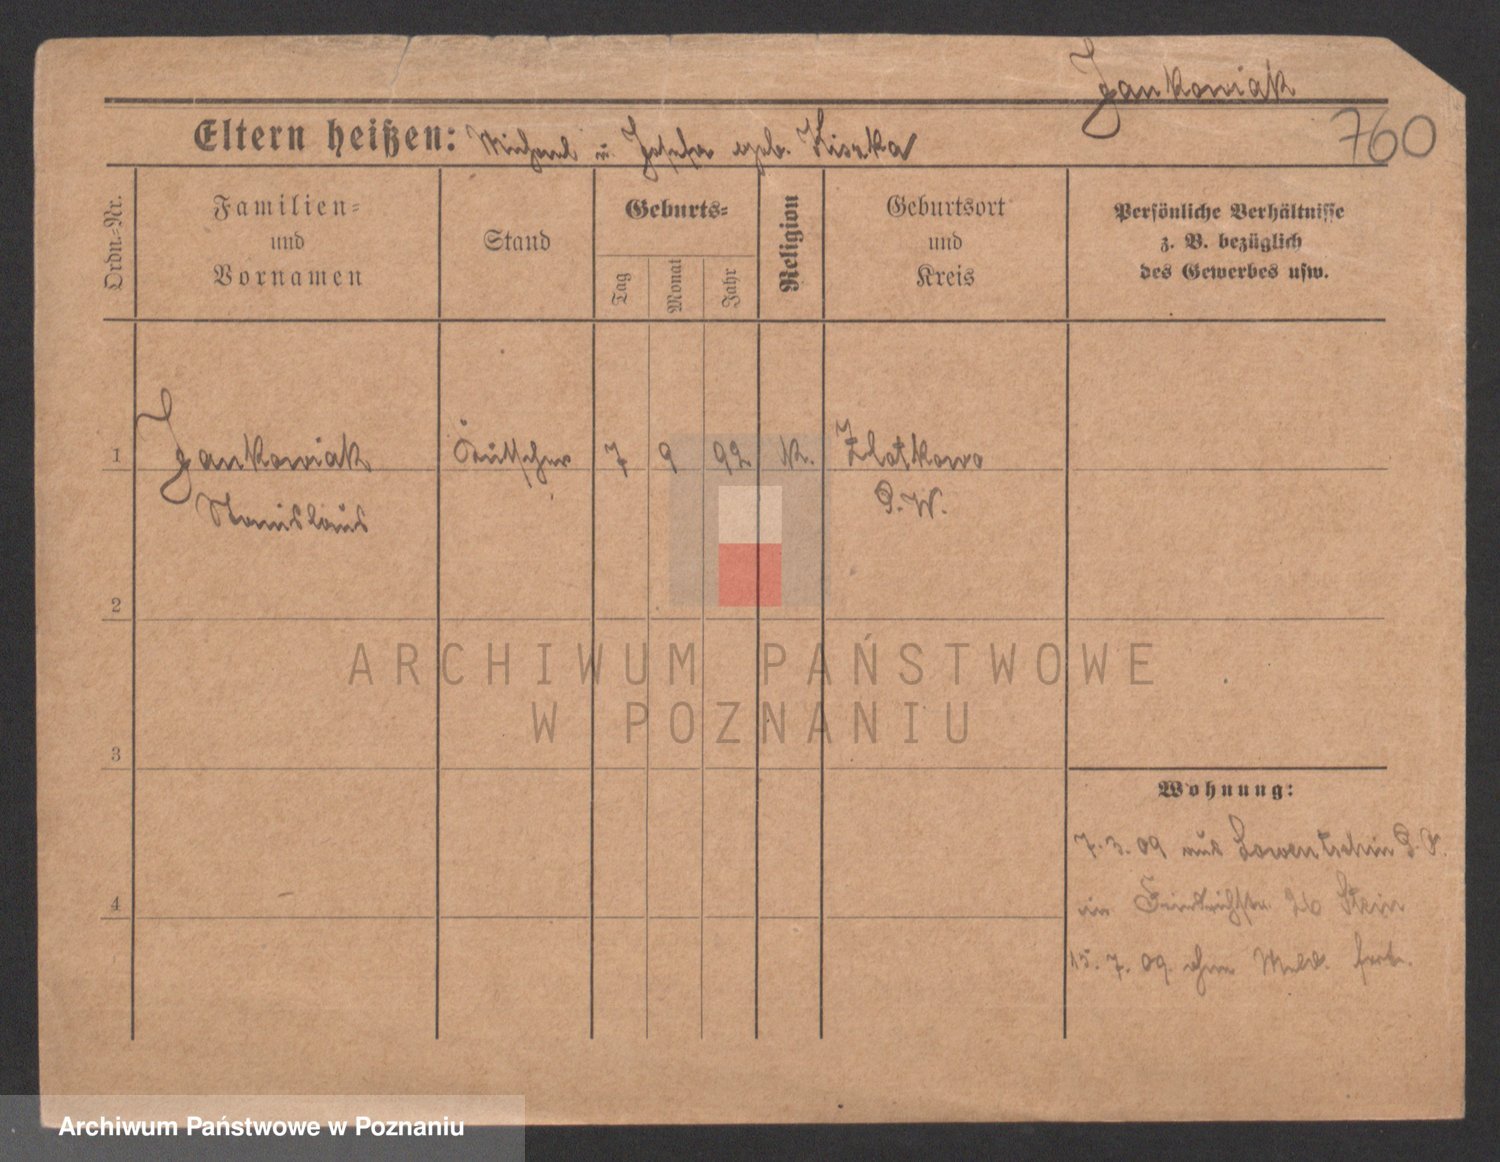 Jankowiak
760
Eltern heißen: Michael u. Josefa geb. Kiszka
Ordn.-Nr.
Familien-
und
Vornamen
Stand
Geburts-
Tag
Monat
Jahr
Religion
Geburtsort
und
Kreis
Persönliche Verhältnisse
z. B. bezüglich
des Gewerbes usw.
1
Jankowiak
Stanislaus
7
9
92
K.
Zlotkowo
P. W.
2
ARCHIWUM PAŃSTWOWE
W POZNANIU
3
Wohnung:
7. 3. 09 aus Lowentschin P. O.
4
in Friedrichstr. 26 Stein
15. 7. 09. ohne Meld. fort.
Archiwum Państwowe w Poznaniu